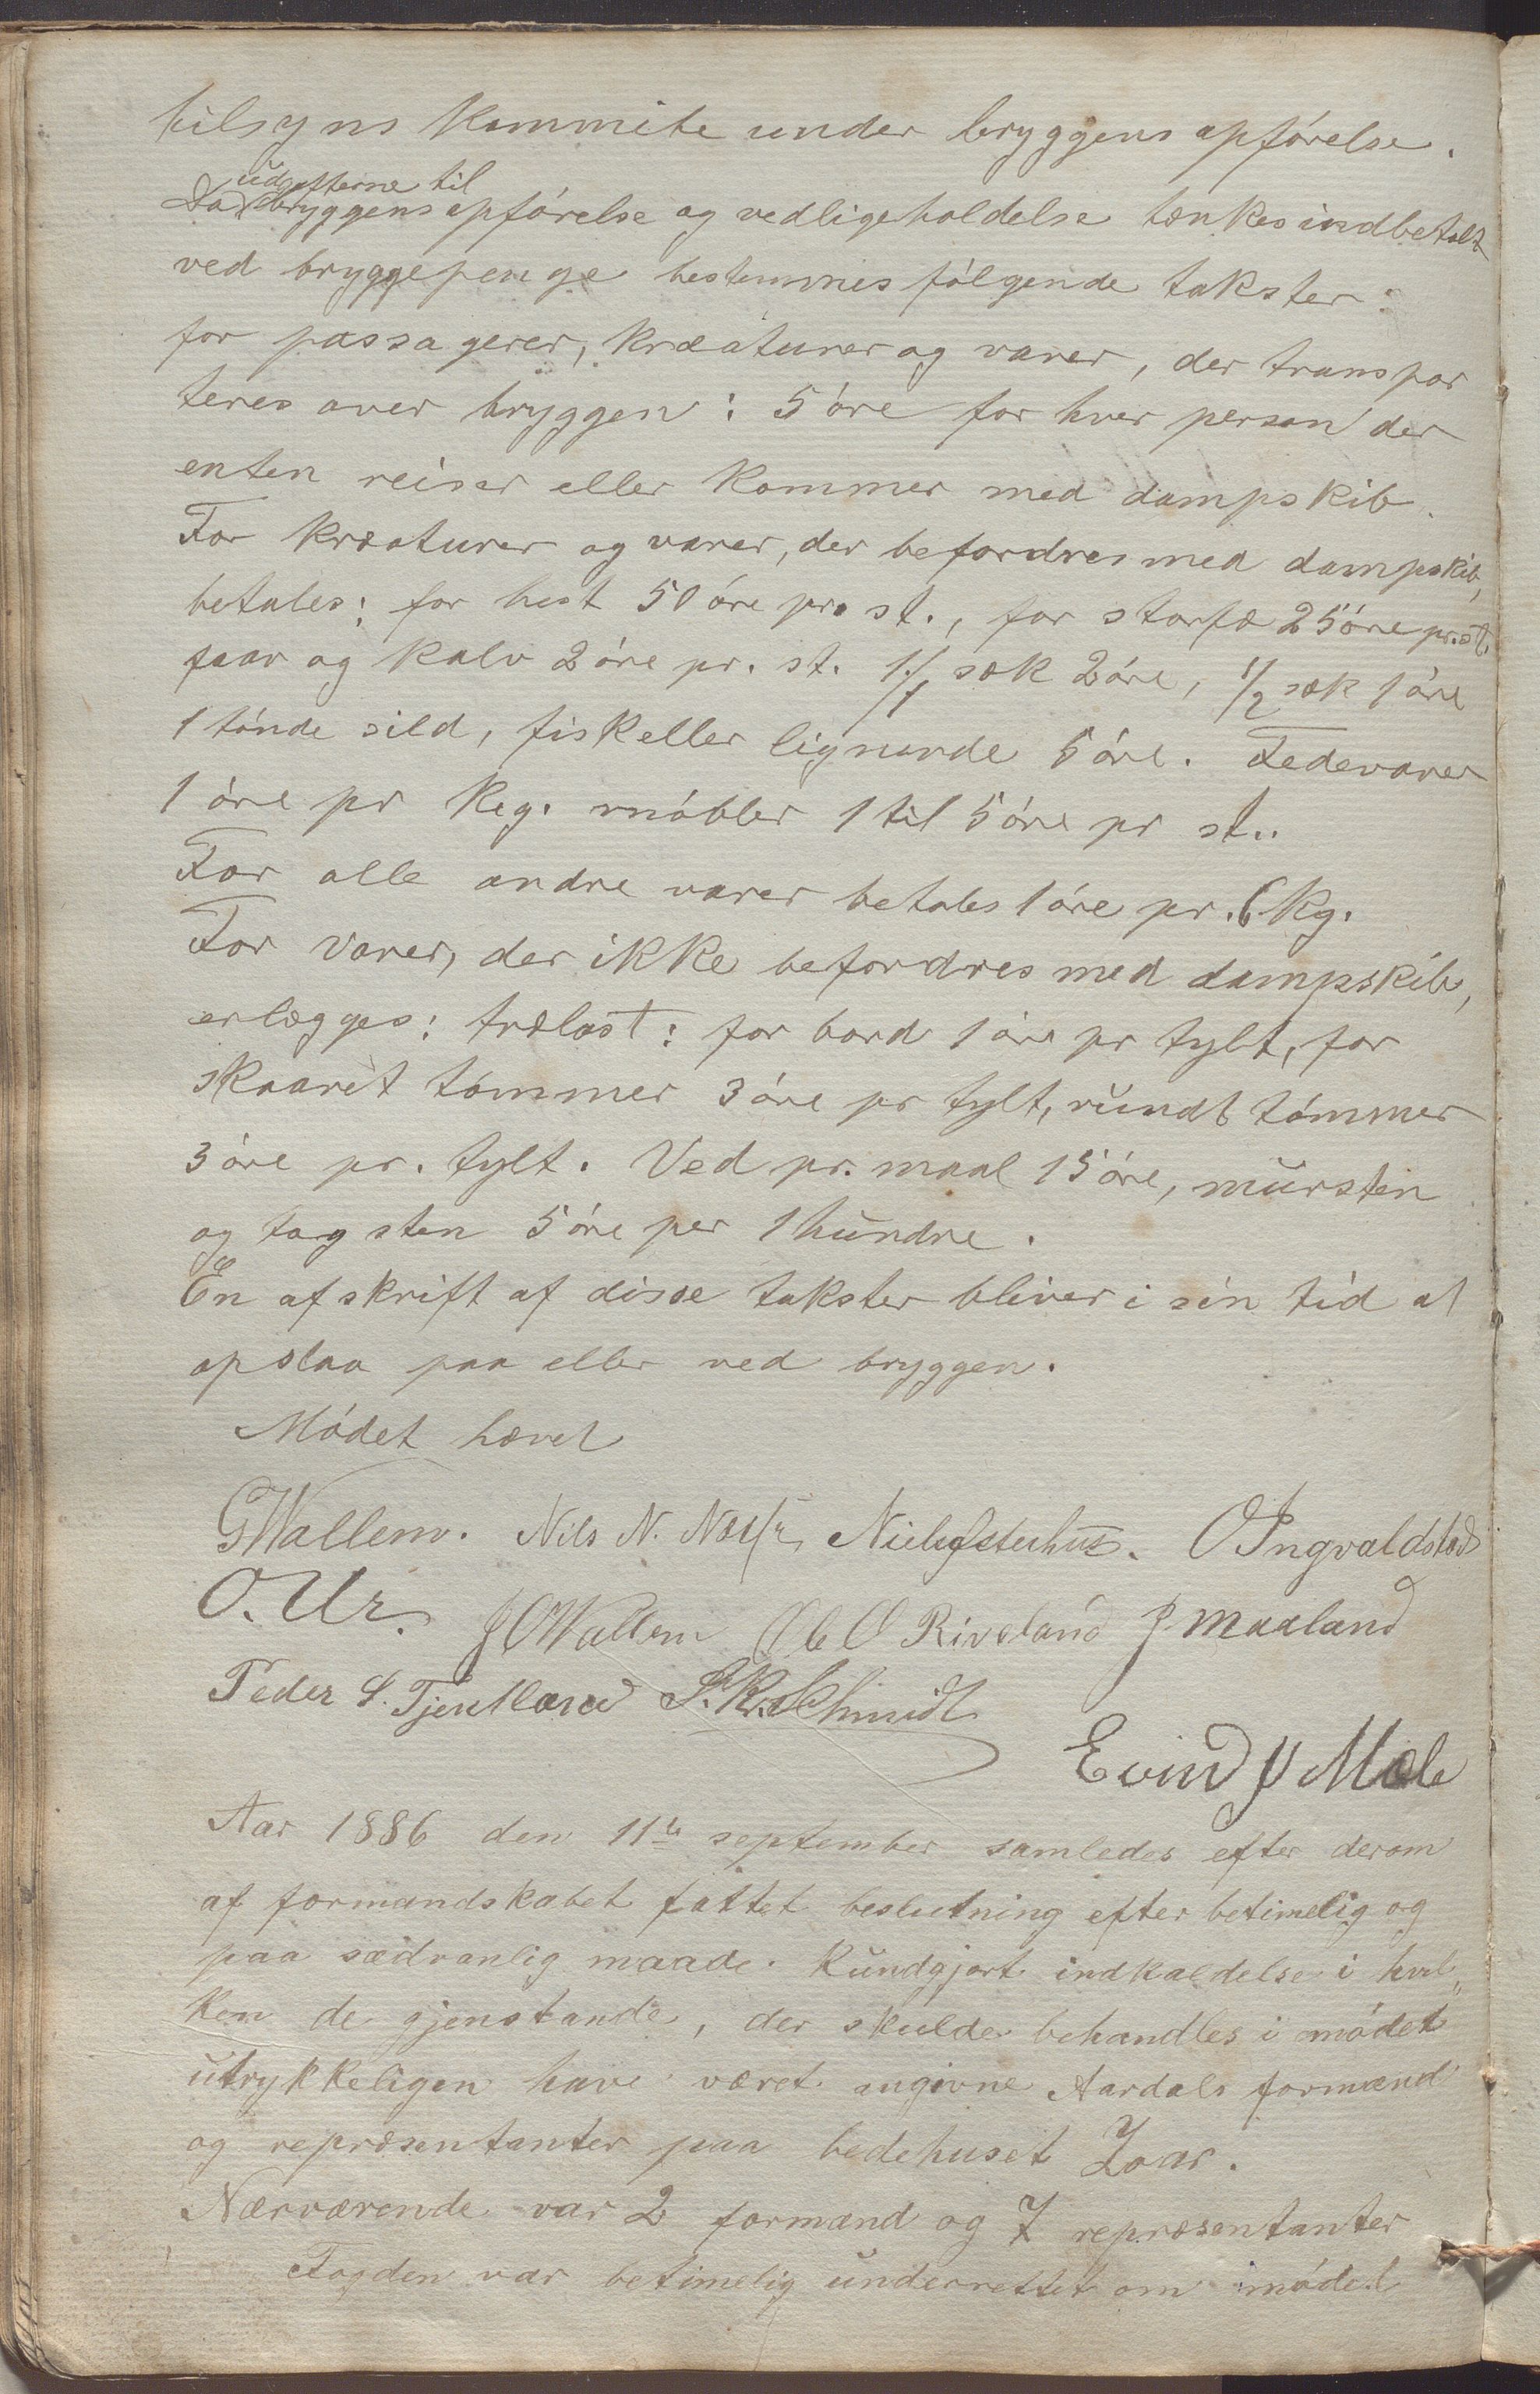 tilsyns kommite under bryggens opførelse.
udgifterne til
Da bryggens opførelse og vedligeholdelse tænkes indbetalt
ved bryggepenge bestemmes følgende takster:
for passagerer, kræaturer og varer, der transpor
teres over bryggen: 5 øre for hver person der
enten reiser eller kommer med dampskib.
For kræaturer og varer, der befordres med dampskib,
betales: for hest 50 øre pr. st., for storfæ 25 øre pr. st.
faar og kalv 2 øre pr. st. 1/1 sæk 2 øre, 1/2 sæk 1 øre
1 tønde sild, fisk eller lignende 5 øre. Fedevarer
1 øre pr keg. møbler 1 til 5 øre pr st..
For alle andre varer betales 1 øre pr. 6 kg.
For varer, der ikke befordres med dampskib,
erlægges: trælast: for bord 1 øre pr tylt, for
skaaret tømmer 3 øre pr tylt, rundt tømmer
3 øre pr. tylt. Ved pr. maal 15 øre, mursten
og tagsten 5 øre per 1 hundre.
En afskrift af disse takster bliver i sin tid at
opslaa paa eller ved bryggen.
Mødet hævet
GWallem. Nils N. O Ingvaldstad
O. Ur. J O Wallem Ole O Riveland J. Maaland
Peder S. Tjentland S. Kr. Schmidt
Evind J Mæle
Aar 1886 den 11te september samledes efter derom
af formandskabet fattet beslutning efter betimelig og
paa sædvanlig maade kundgjort indkaldelse i hvil„
ken de gjenstande, der skulde behandles i mødet
utrykkeligen have været angivne Aardals formænd
og repræsentanter paa bedehuset Zoar.
Nærværende var 2 formænd og 7 repræsentanter
Fogden var betimelig underrettet om mødet